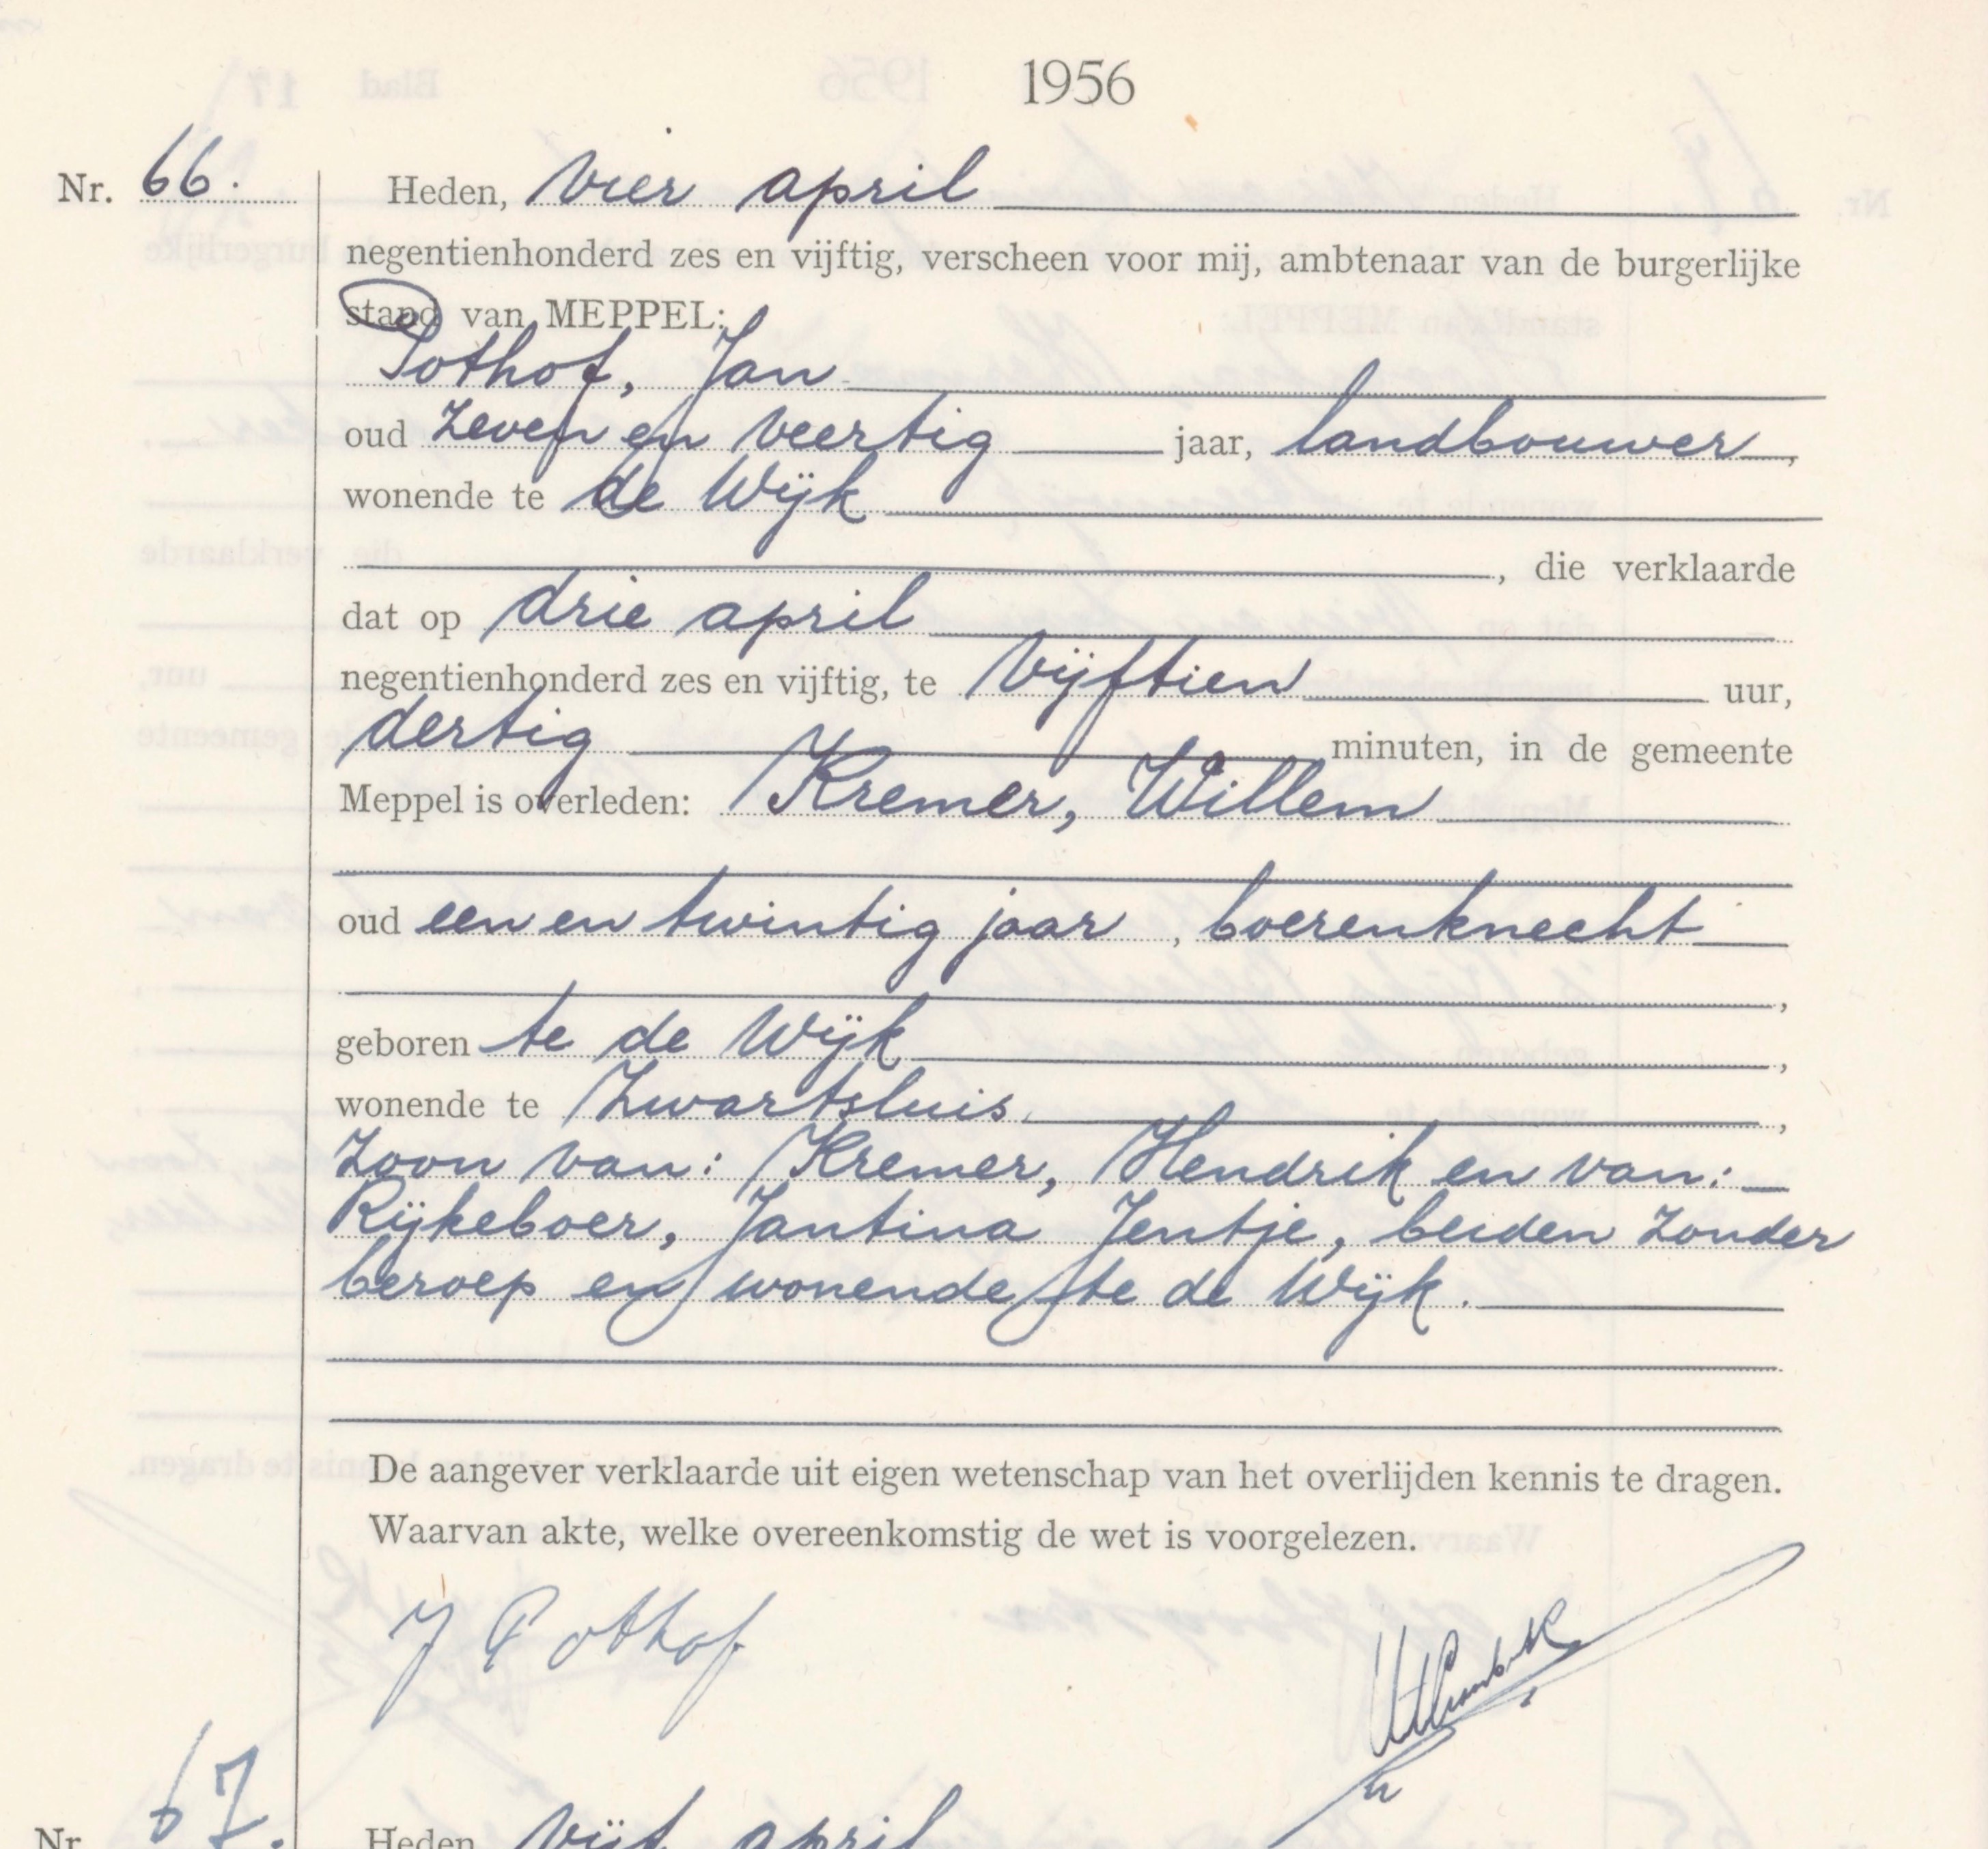 1956
Nr. 66.
Heden, vier april
negentienhonderd zes en vijftig, verscheen voor mij, ambtenaar van de burgerlijke
stand van MEPPEL:
Pothof, Jan
oud zeven en veertig jaar, landbouwer,
wonende te de Wijk
, die verklaarde
dat op drie april
negentienhonderd zes en vijftig, te vijftien uur,
dertig minuten, in de gemeente
Meppel is overleden: Kremer, Willem
oud een en twintig jaar, boerenknecht
,
geboren te de Wijk,
wonende te Zwartsluis,
zoon van: Kremer, Hendrik en van:
Rijkeboer, Jantina Jentje, beiden zonder
beroep en wonende te de Wijk.
De aangever verklaarde uit eigen wetenschap van het overlijden kennis te dragen.
Waarvan akte, welke overeenkomstig de wet is voorgelezen.
J Pothof
Nr. 67.
Heden vijf april